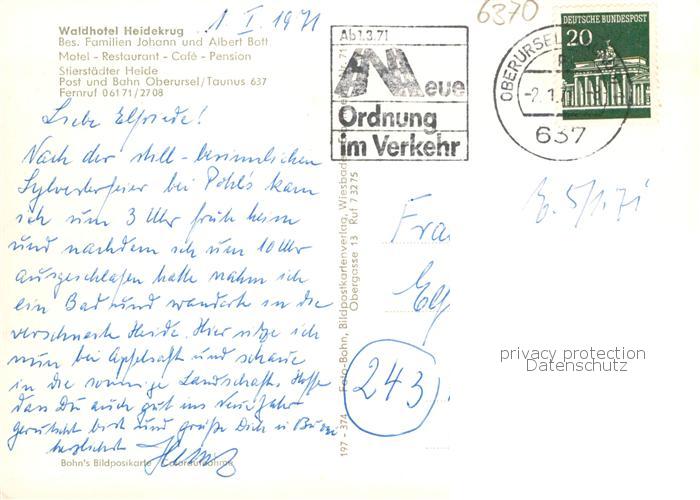 Waldhotel Heidekrug
Bes. Familien Johann und Albert Bott
Motel - Restaurant - Café - Pension
Stierstädter Heide
Post und Bahn Oberursel/Taunus 637
Fernruf 06171/2708
1. I. 1971
Liebe Elfriede!
Nach der still-besinnlichen
Sylvesterfeier bei Pohl's kam
ich um 3 Uhr früh heim
und nachdem ich um 10 Uhr
ausgeschlafen hatte nahm ich
ein Bad und wanderte in die
verschneite Heide. Hier sitze ich
nun bei Apfelsaft und schaue
in die sonnige Landschaft. Hoffe
dass Du auch gut ins Neue Jahr
gerutscht bist und grüße Dich u
herzlichst
Bohn's Bildpostkarte
197 - 374 Foto-Bohn, Bildpostkartenverlag, Wiesbaden
Obergasse 13 Ruf 7 3275
Ab 1.3.71
Neue
Ordnung
im Verkehr
6370
DEUTSCHE BUNDESPOST
20
OBERURSEL
-2.1.
637
5/1.71
Fra
Elf
243
privacy protection
Datenschutz